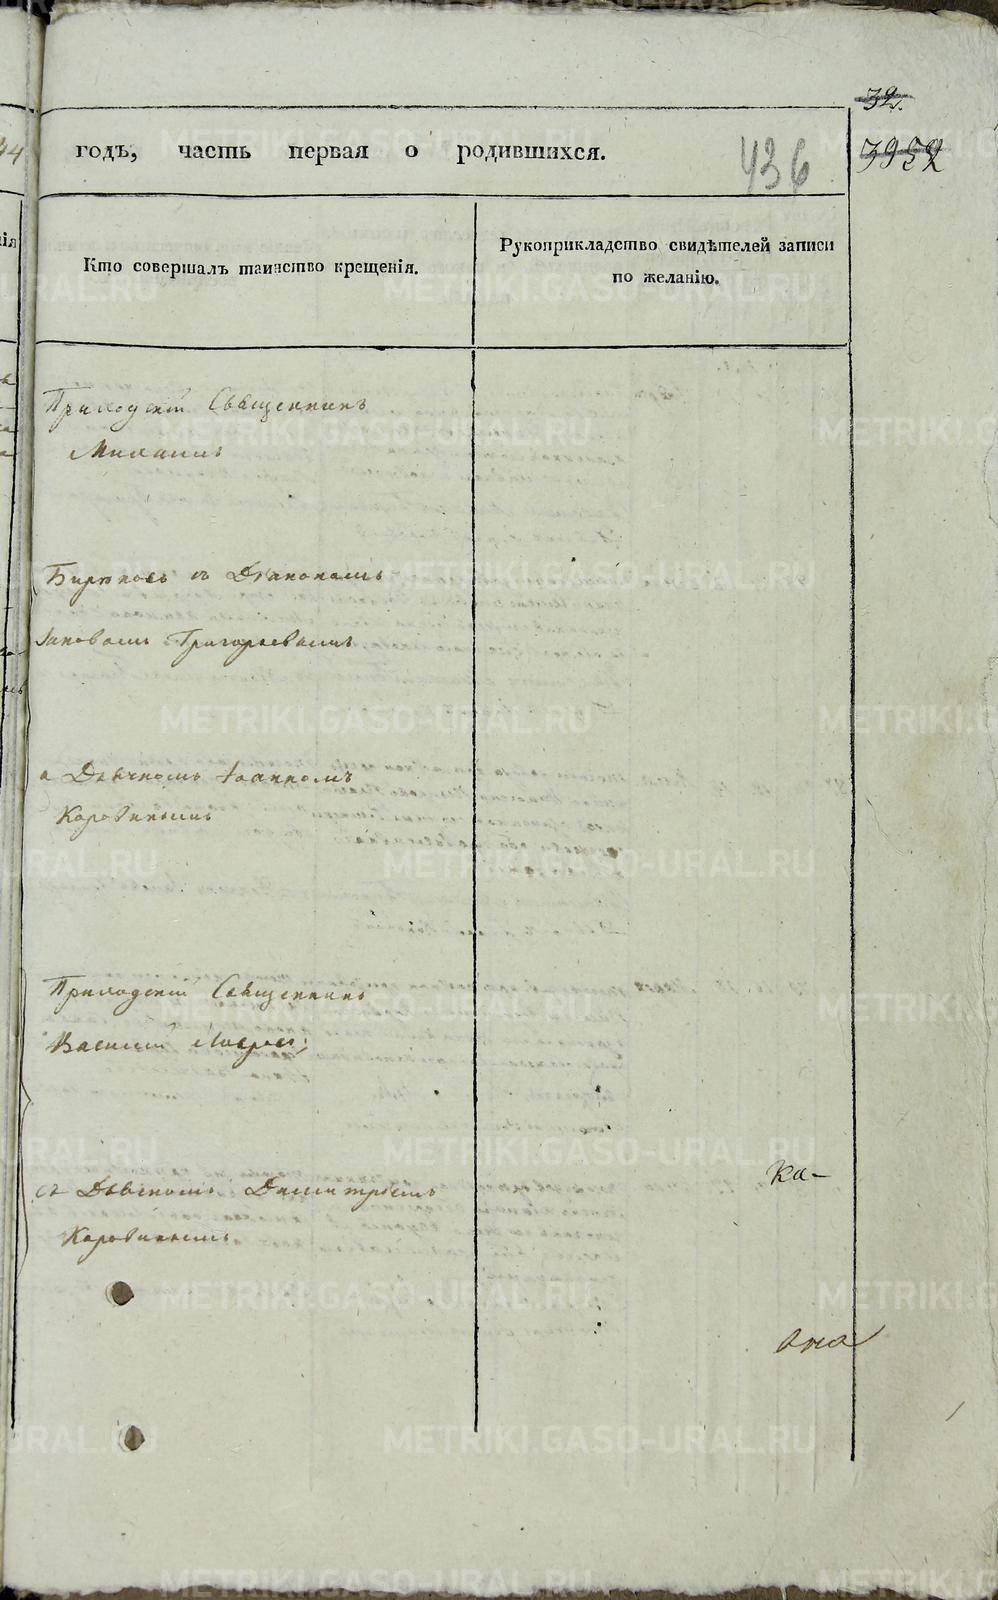 32.
годъ, часть первая о родившихся.
436
3952
Кто совершалъ таинство крещенія.
Рукоприкладство свидѣтелей записи
по желанію.
Приходскій Священникъ
Михаилъ
Бирюковъ съ Дьякономъ
Григорьевымъ
а Дьячкомъ Іоанномъ
Коровинымъ
Приходскій Священникъ
Василий
съ Дьячкомъ Димитріемъ
Коровинымъ
Ка-
METRIKI.GASO-URAL.RU